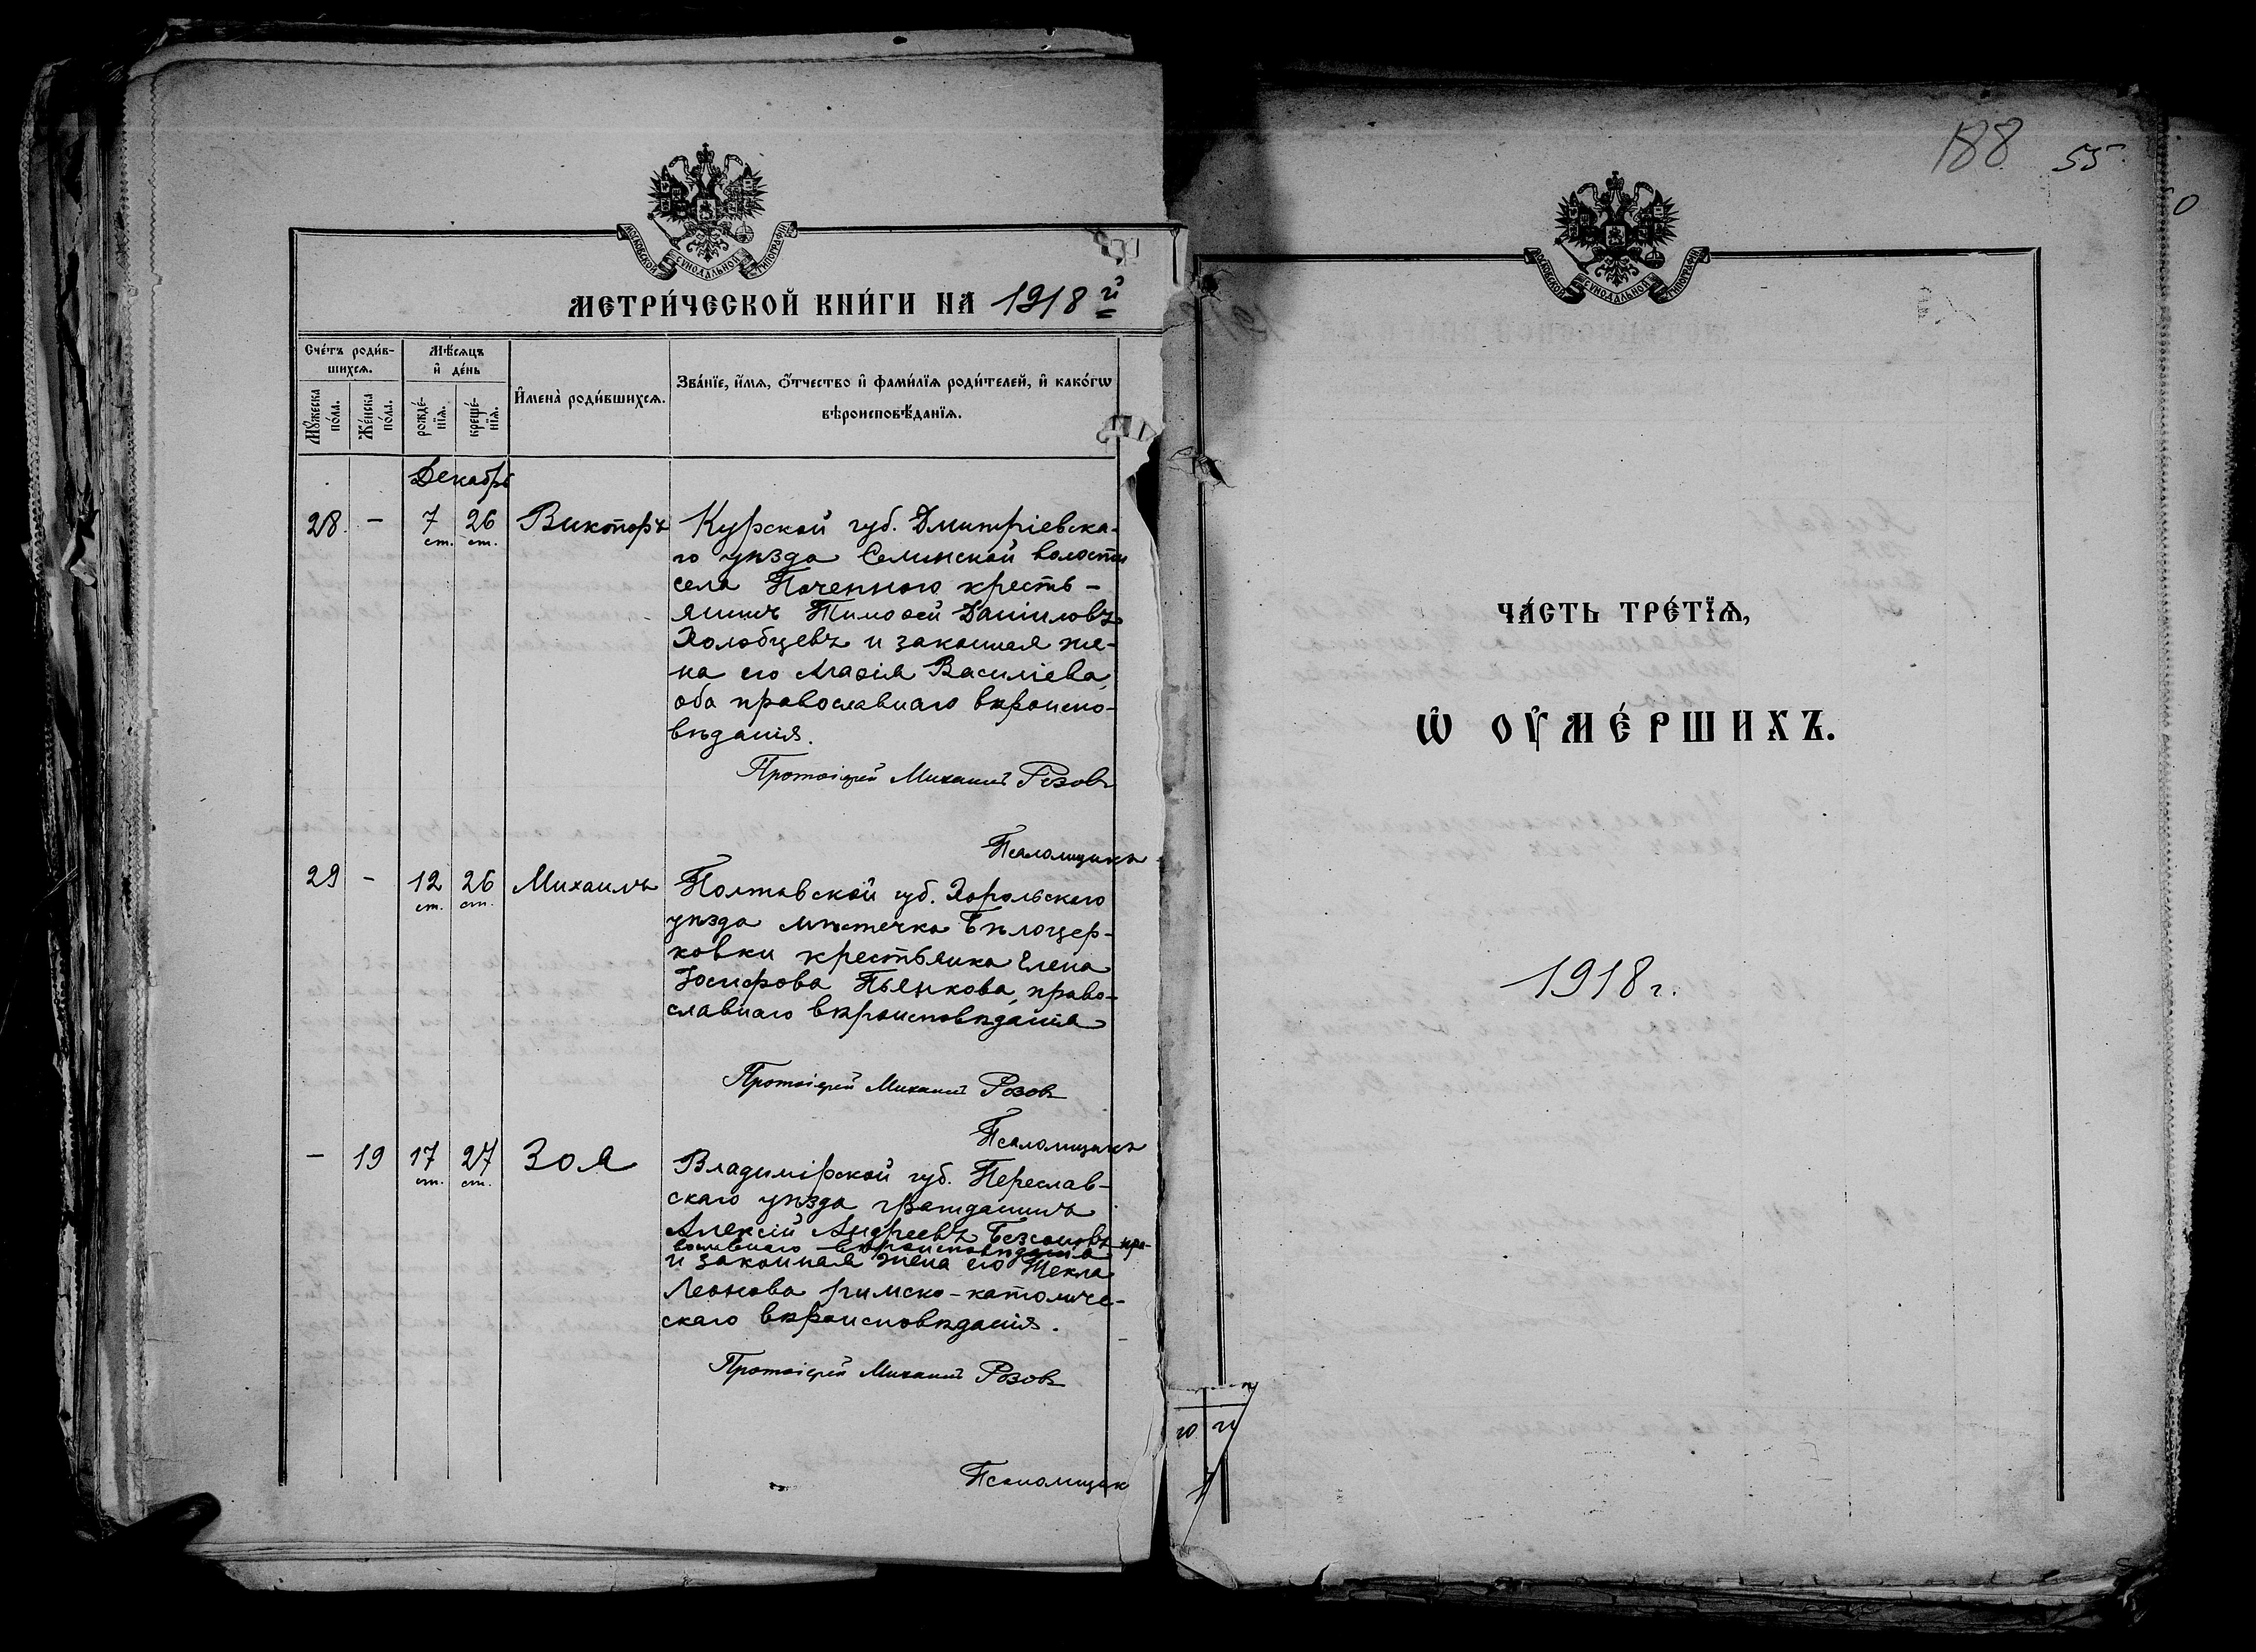 МОСКОВСКОЙ СУНОДАЛЬНОЙ ТИПОГРАФІИ
МЕТРИ́ЧЕСКОЙ КНИ́ГИ НА 1918 й
Сче́тъ роди́в-
шихсѧ.
Мѣ́сѧцъ
и҆ де́нь
Мꙋ́жеска
по́ла.
Же́нска
по́ла.
рожде́-
нїѧ.
креще́-
нїѧ.
И҆мена̀ роди́вшихсѧ.
Зва́нїе, и҆́мѧ, ѻ҆́тчество и҆ фами́лїѧ роди́телей, и҆ како́гѡ
вѣроисповѣ́данїѧ.
Декабрь
28 - 7 ст. 26 ст. Викторъ
Курской губ. Дмитріевска-
го уѣзда Селинской волости
села Поченного кресть-
янинъ Тимоѳей Даниловъ
Холобцевъ и законная же-
на его Марія Василіева,
оба православнаго вѣроиспо-
вѣданія.
Протоіерей Михаилъ Розовъ
Псаломщикъ
29 - 12 ст. 26 ст. Михаилъ
Полтавской губ. Хорольскаго
уѣзда мѣстечка Бѣлоцер-
ковки крестьянка Елена
Іосифова Пьянкова, право-
славнаго вѣроисповѣданія
Протоіерей Михаилъ Розовъ
Псаломщикъ
- 19 17 ст. 27 ст. Зоя
Владимірской губ. Переслав-
скаго уѣзда гражданинъ
Алексій Андреевъ Безсоновъ пра-
вославнаго вѣроисповѣданія
и законная жена его Текла
Леонова римско-католиче-
скаго вѣроисповѣданія.
Протоіерей Михаилъ Розовъ
Псаломщик
188 55
0
МОСКОВСКОЙ СУНОДАЛЬНОЙ ТИПОГРАФІИ
ЧА́СТЬ ТРЕ́ТЇѦ,
Ѡ҆ ОУ҆МЕ́РШИХЪ.
1918 г.